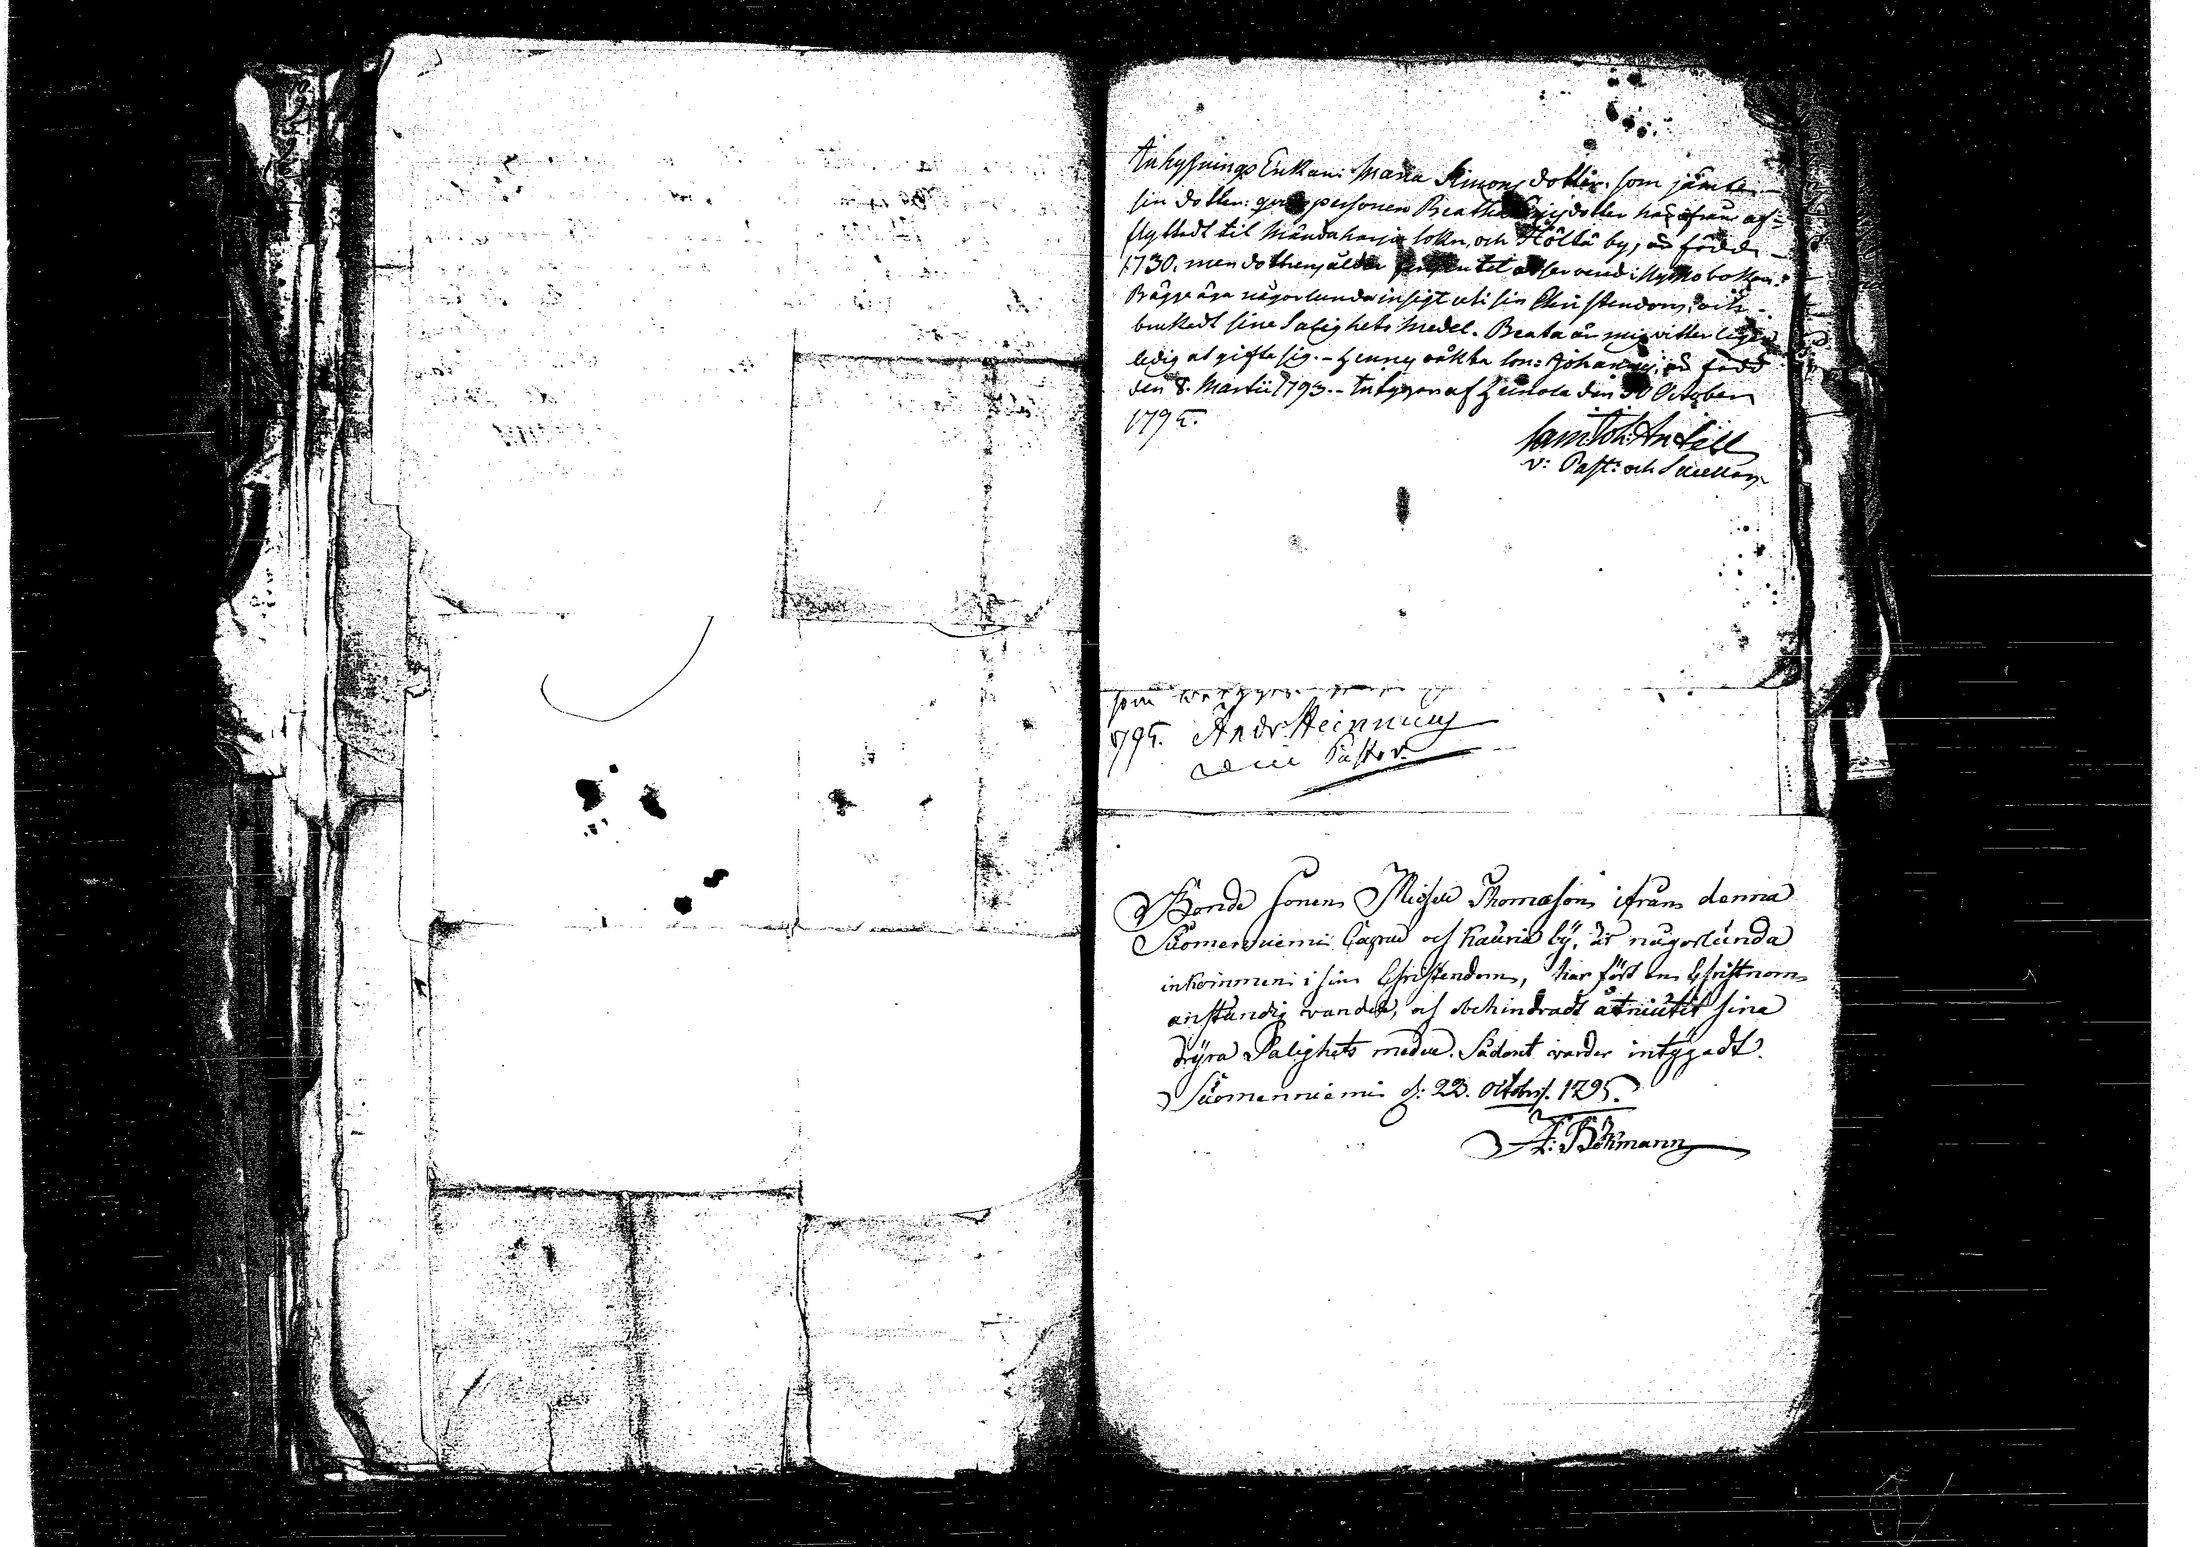 Inhysnings Enkan: Maria Simonsdotter, som jämte
sin dotter: qvinspersonen Beatha dotter härifrån af-
flyttadt til Mändäharju sokn, och Höltä by, är född
1730. men dotterns ålder til observerad i kyrkoboken.
Bägge äga någorlunda insigt uti sin Christendom, och
brukadt sine Salighets medel. Beata är mig vitterligen
ledig at gifta sig. - Hennes oäkta son: Johannes, är född
den 8. Martii 1793. - Intygar af Heinola den 30 October
1795.
Sam: Joh: Antell
v: Past: och Sacellan
som intygas
1795. Andr. Heinricius
Vice Pastor.
Bonde sonen Michel Thomæson ifrån denna
Suomenniemi Capell och Kauria by, är någorlunda
inkommen i sin Christendom, har fört en Christnom
anständig vandel, och obehindradt åtniutit sina
dyra Salighets medel. Sådant varder intygadt.
Suomenniemi d: 23. Octobr. 1795.
A: Bökmann